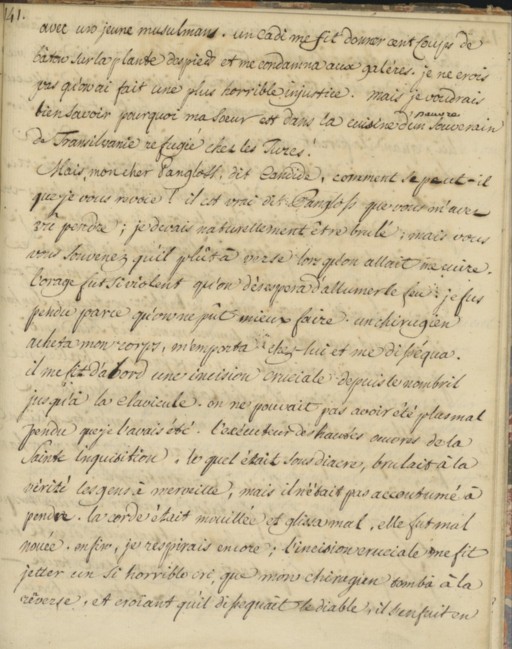 141.
avec un jeune musulman. un cadi me fit donner cent coups de
bâton sur la plante des pieds et me condamna aux galéres. je ne crois
pas qu'on ai fait une plus horrible injustice. mais je voudrais
bien savoir pourquoi ma soeur est dans la cuisine d'un pauvre souverain
de Transilvanie refugié chez les Turcs.
Mais, mon cher Pangloss, dit Candide, comment se peut-il
que je vous revoie! il est vrai dit Pangloss que vous m'avez
vû pendre; je devais naturellement être brulé; mais vous
vous souvenez qu'il plût à verse lors qu'on allait me cuire.
l'orage fut si violent qu'on désespera d'allumer le feu; je fus
pendu parce qu'on ne pût mieux faire. un chirugien
acheta mon corps, m'emporta chez lui et me disséqua.
il me fit d'abord une incision cruciale depuis le nombril
jusqu'à la clavicule. on ne pouvait pas avoir été plus mal
pendu que je l'avais été. l'exécuteur des hautes oeuvres de la
sainte inquisition, le quel était sousdiacre, brulait à la
vérité les gens à merveille, mais il n'était pas accoutumé à
pendre. la corde était mouillée et glissa mal, elle fut mal
nouée. enfin, je respirais encore; l'incision cruciale me fit
jetter un si horrible cri, que mon chirugien tomba à la
rêverse, et croiant qu'il disséquait le diable, il s'enfuit en